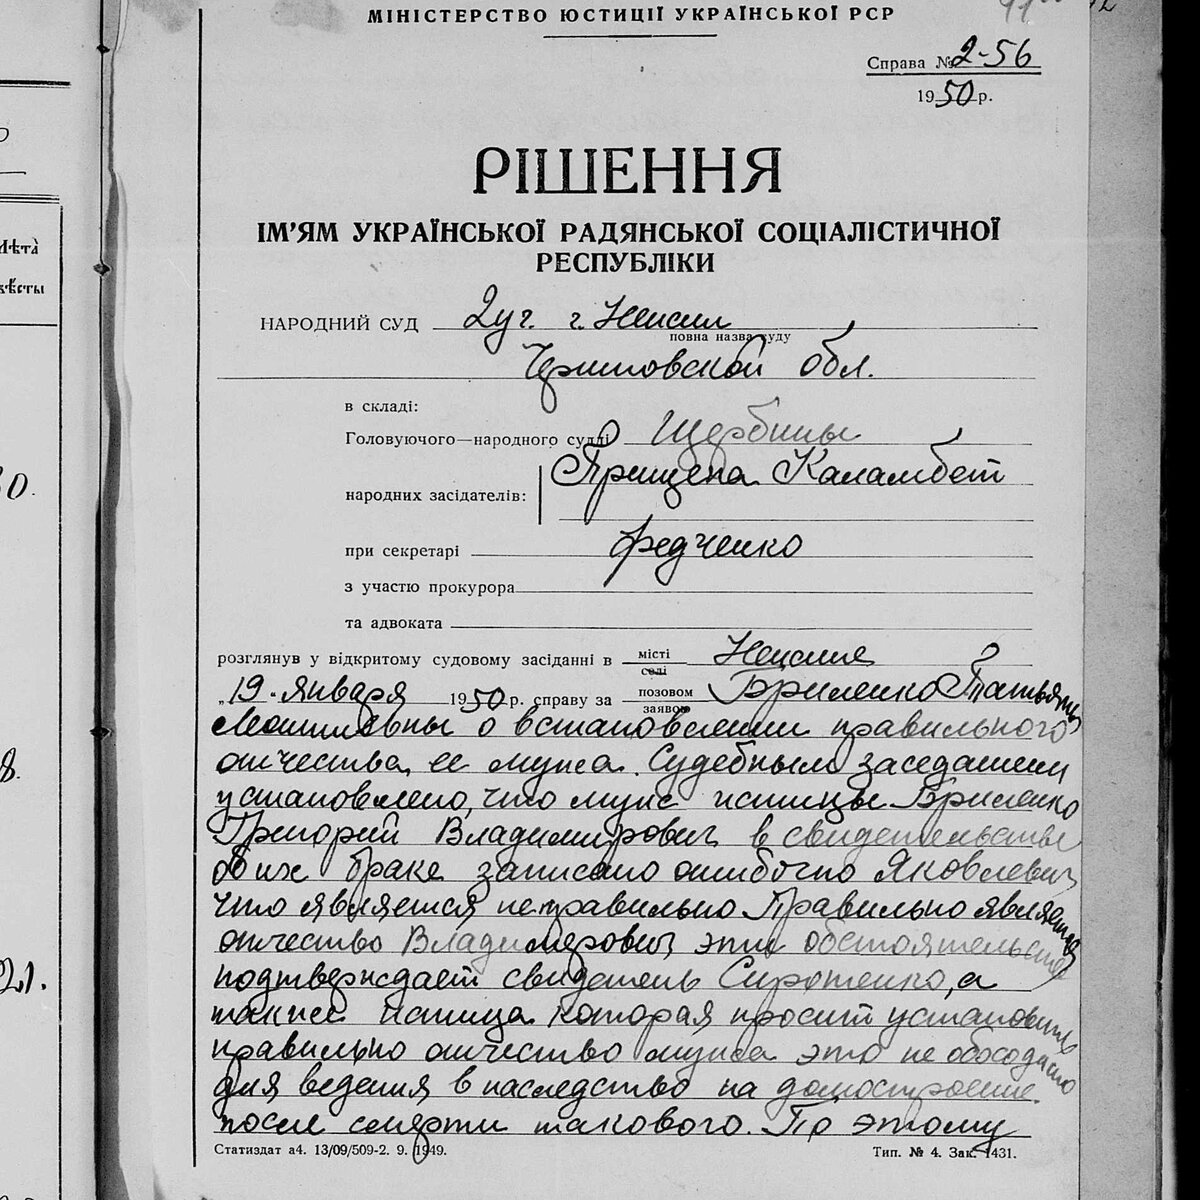 МІНІСТЕРСТВО ЮСТИЦІЇ УКРАЇНСЬКОЇ РСР
Справа № 2-56
1950 р.
РІШЕННЯ
ІМ'ЯМ УКРАЇНСЬКОЇ РАДЯНСЬКОЇ СОЦІАЛІСТИЧНОЇ
РЕСПУБЛІКИ
НАРОДНИЙ СУД 2 уч. г. Нежин
повна назва суду
Черниговской обл.
в складі:
Головуючого—народного судді Щербины
Прищепа Каламбет
народних засідателів:
при секретарі Федченко
з участю прокурора
та адвоката
розглянув у відкритому судовому засіданні в місті селі Нежине
„19" января 1950 р. справу за позовом заявою Бриленко Татьяны
о встановлении правильного
отчества ее мужа. Судебным заседанием
установлено, что муж истицы Бриленко
Григорий Владимирович в свидетельстве
об их браке записано ошибочно Яковлевич
что является неправильно Правильно является
отчество Владимирович эти обстоятельства
подтверждает свидетель Сиротенко, а
также истица которая просит установить
правильно отчество мужа это не обходимо
для ведения в наследство на домостроение
после смерти такового. По этому
Статиздат а4. 13/09/509-2. 9. 1949.
Тип. № 4. Зак. 1431.
лѣта
80.
8.
21.